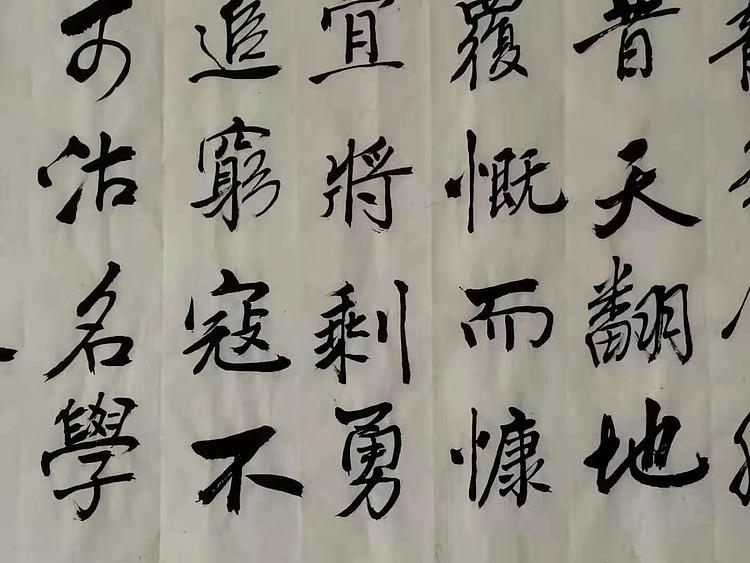 昔天翻地
覆慨而慷
宜將剩勇
追窮寇不
可沽名學